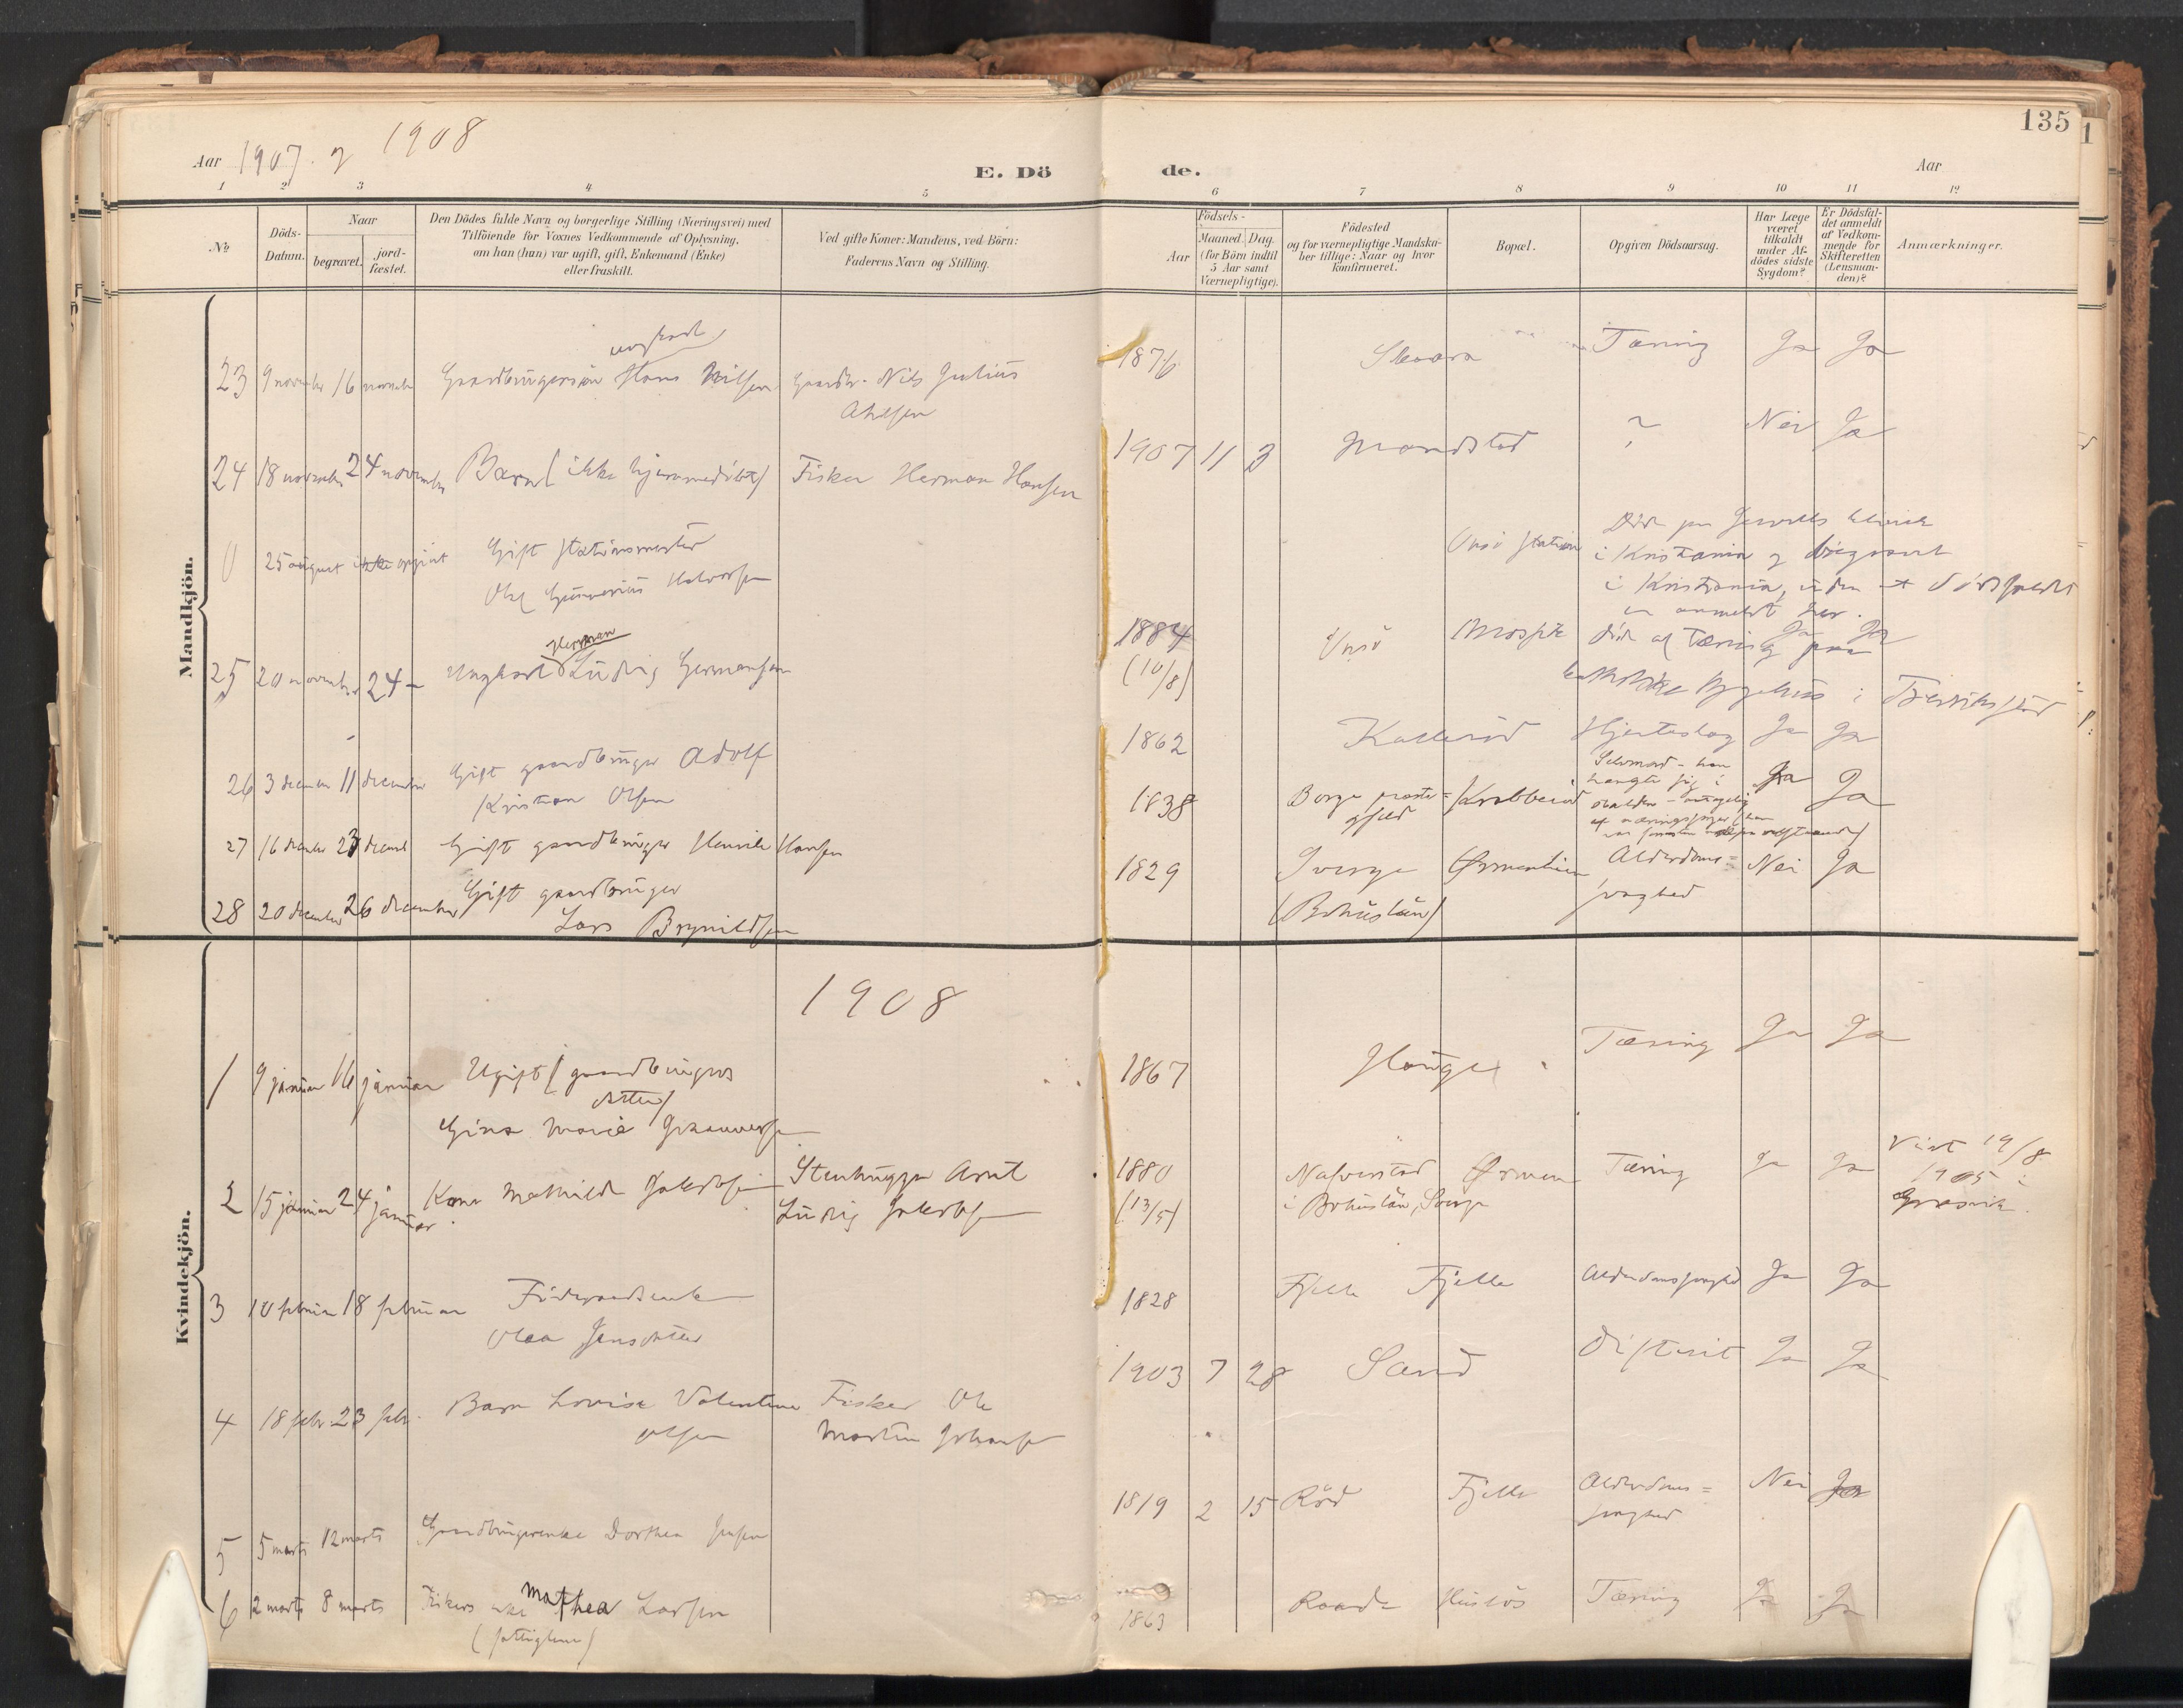 135
1
Aar 1907 og 1908
E. Dö
de.
Aar
1 2 3 4 5 6 7 8 9 10 11 12
No
Döds-
Datum.
Naar
begravet.
jord-
fæstet.
Den Dödes fulde Navn og borgerlige Stilling (Næringsvei) med
Tilföiende for Voxnes Vedkommende af Oplysning,
om han (hun) var ugift, gift, Enkemand (Enke)
eller fraskilt.
Ved gifte Koner: Mandens, ved Börn:
Faderens Navn og Stilling.
Födsels-
Aar
Maaned. Dag.
(for Börn indtil
5 Aar samt
Værnepligtige).
Födested
og for værnepligtige Mandska-
ber tillige: Naar og hvor
konfirmeret.
Bopæl.
Opgiven Dödsaarsag.
Har Læge
været
tilkaldt
under Af-
dödes sidste
Sygdom?
Er Dödsfal-
det anmeldt
af Vedkom-
mende for
Skifteretten
(Lensman-
den)?
Anmærkninger.
Mandkjön.
ungkarl
23 9 november 16 november Gaardbrugersön Hans Nilsen Gaardbr. Nils Julius 1876 Skaara Tæring Ja Ja
24 18 november 24 november Barn (ikke hjemmedöbt) Fisker Herman Hansen 1907 11 3 ? Nei Ja
0 25 august ikke opgivt Gift stationsmester
Onsö station
Död paa
i Kristiania og begravet
i Kristiania, uden at dödsfaldet
er anmeldt her.
Herman
25 20 november 24 – Ungkarl Ludvig Hermansen
1884
(10/8)
Onsö
död af Tæring paa Ja Ja
katholske sygehus i Fredrikstad
26 3 december 11 december Gift gaardbruger Adolf
Kristian Olsen
1862 Hjerteslag Ja Ja
27 16 december 23 december Gift gaardbruger Henrik Hansen
1838 Borge præste-
gjeld Krabberöd
Selvmord – han
hængte sig i
Ja Ja
28 20 december 26 december Gift gaardbruger
Lars Brynildsen
1829 Sverge
(Bohuslän)
Alderdoms-
svaghed
Nei Ja
Kvindekjön.
1908
1 9 januar 16 januar Ugift (gaardbrugers
datter)
Gina Marie
1867 Hauge Tæring Ja Ja
2 15 januar 24 januar. Kone Mathilde Jakobsen Stenhugger Arnt
Ludvig Jakobsen
1880
(13/5)
i Bohuslän, Sverge
Tæring Ja Ja
Viet 19/8
1905 i
Græsvik.
3 10 februar 18 februar Föderaadsenke
Olea Jensdatter
1828 Fjelle Fjelle Alderdomssvaghed Ja Ja
4 18 febr 23 febr. Barn Lovise Valentine
Olsen
Fisker Ole
Martin Johansen
1903 7 28 Sand Difterit Ja Ja
5 5 marts 12 marts Gaardbrugerenke Dorthea Jensen
1819 2 15 Röd Fjelle Alderdoms=
svaghed
Nei Ja
6 2 marts 8 marts Fiskers enke Mathea Larsen
(fattiglem)
1863 Raade Huslös Tæring Ja Ja